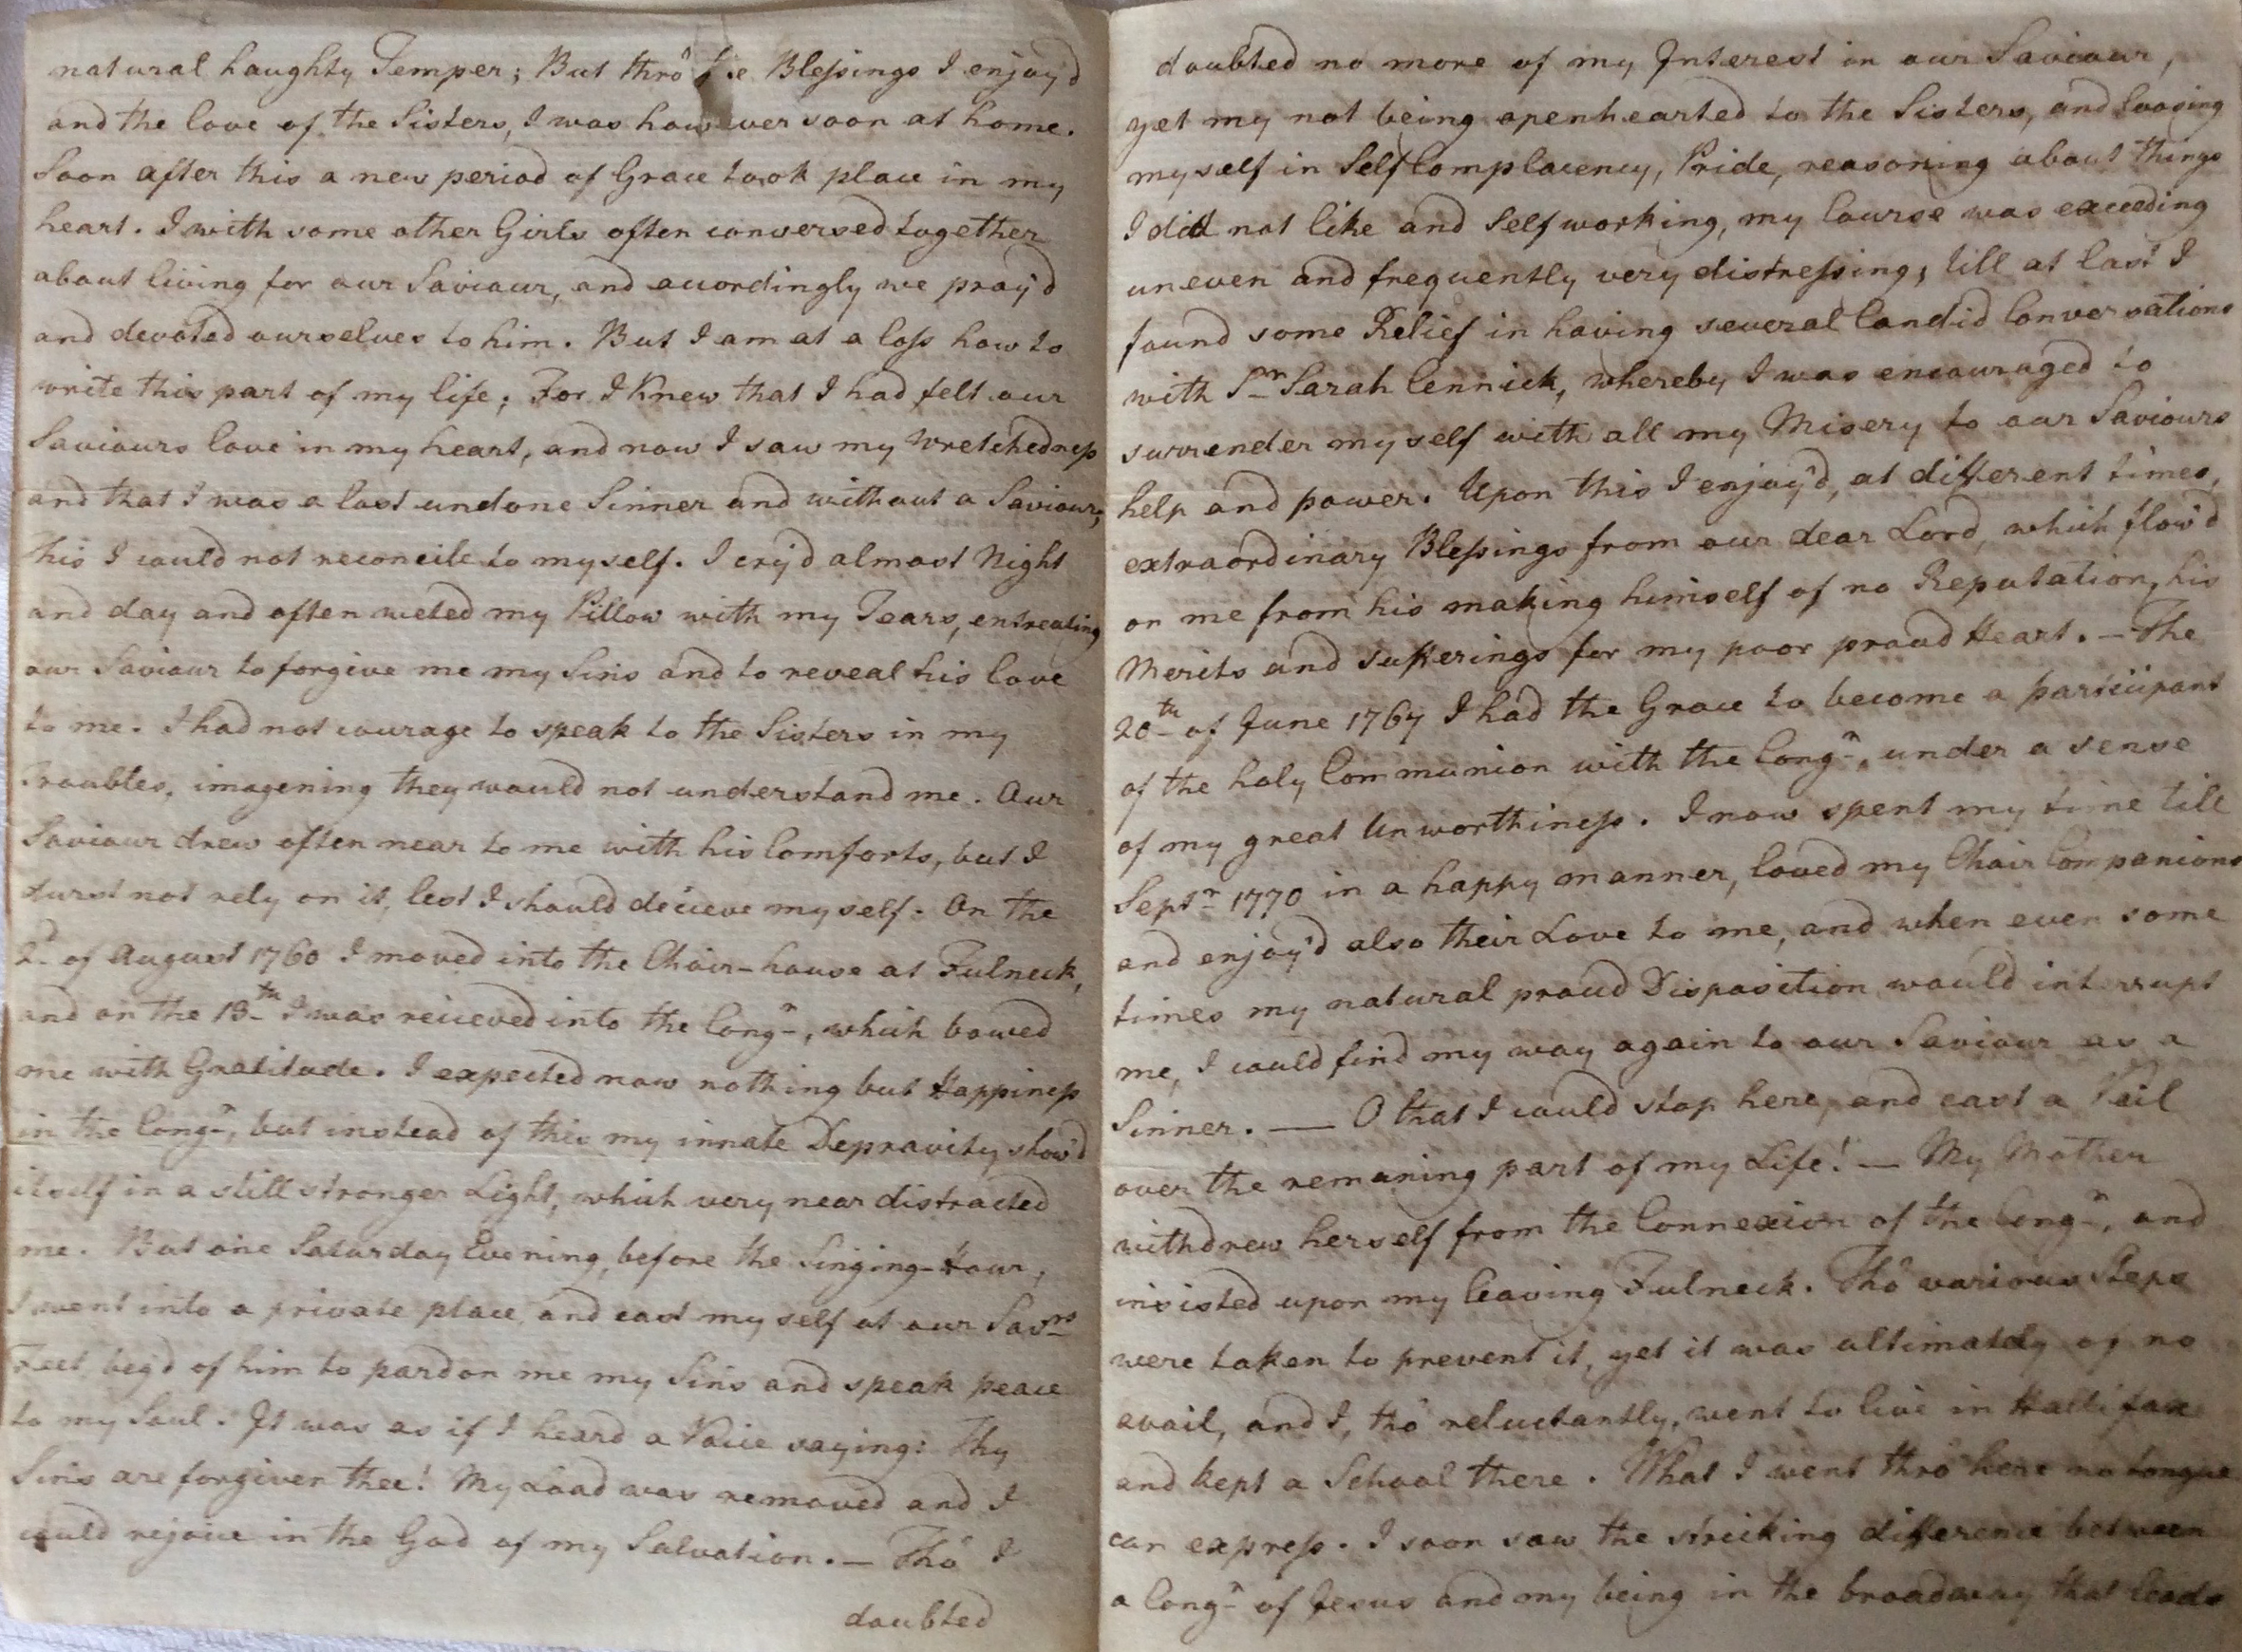 natural haughty Temper; But thrô the Blessings I enjoy'd
and the love of the Sisters, I was however soon at home.
Soon after this a new period of Grace took place in my
heart. I with some other Girls often conversed together
about living for our Saviour, and accordingly we pray'd
and devoted ourselves to him. But I am at a loss how to
write this part of my life; For I Knew that I had felt our
Saviours love in my heart, and now I saw my Wretchedness
and that I was a lost undone Sinner and without a Saviour,
This I could not reconcile to myself. I cry'd almost Night
and day and often weted my Pillow with my Tears, entreating
our Saviour to forgive me my Sins and to reveal his love
to me. I had not courage to speak to the Sisters in my
Troubles, imagening they would not understand me. Our
Saviour drew often near to me with his Comforts, but I
durst not rely on it, lest I should decieve myself. On the
2d of August 1760 I moved into the Choir-house at Fulneck,
and on the 13th I was recieved into the Congn, which bowed
me with Gratitude. I expected now nothing but Happiness
in the Congn, but instead of this my innate Depravity show'd
itself in a still stronger Light, which very near distracted
me. But one Saturday Evening, before the Singing-Hour,
I went into a private place, and cast myself at our Savrs
Feet, beg'd of him to pardon me my Sins and speak peace
to my Soul. It was as if I heard a Voice saying: Thy
Sins are forgiven thee! My Load was removed and I
could rejoice in the God of my Salvation. — Thô I
doubted
doubted no more of my Interest in our Saviour,
yet my not being openhearted to the Sisters, and loosing
myself in Self Complacency, Pride, reasoning about things
I did not like and Self working, my Course was exceeding
uneven and frequently very distressing, till at last I
found some Relief in having several Candid Conversations
with Sr Sarah Cennick, whereby I was encouraged to
surrender myself with all my Misery to our Saviours
help and power. Upon this I enjoy'd, at different times,
extraordinary Blessings from our dear Lord, which flow'd
on me from his making himself of no Reputation, his
Merits and Sufferings for my poor proud Heart. — The
20th of June 1767 I had the Grace to become a participant
of the holy Communion with the Congn, under a sense
of my great Unworthiness. I now spent my time till
Septr 1770 in a happy manner, loved my Choir Companions
and enjoy'd also their Love to me, and when even some
times my natural proud Disposition would interrupt
me, I could find my way again to our Saviour as a
Sinner. — O that I could stop here, and cast a Vail
over the remaning part of my Life! — My Mother
withdrew herself from the Connexion of the Congn, and
insisted upon my leaving Fulneck. Thô various Steps
were taken to prevent it, yet it was ultimately of no
avail, and I, thô reluctantly, went to live in Hallifax
and kept a School there. What I went thrô here no tongue
can express. I soon saw the streiking difference between
a Congn of Jesus and my being in the broadway that leads